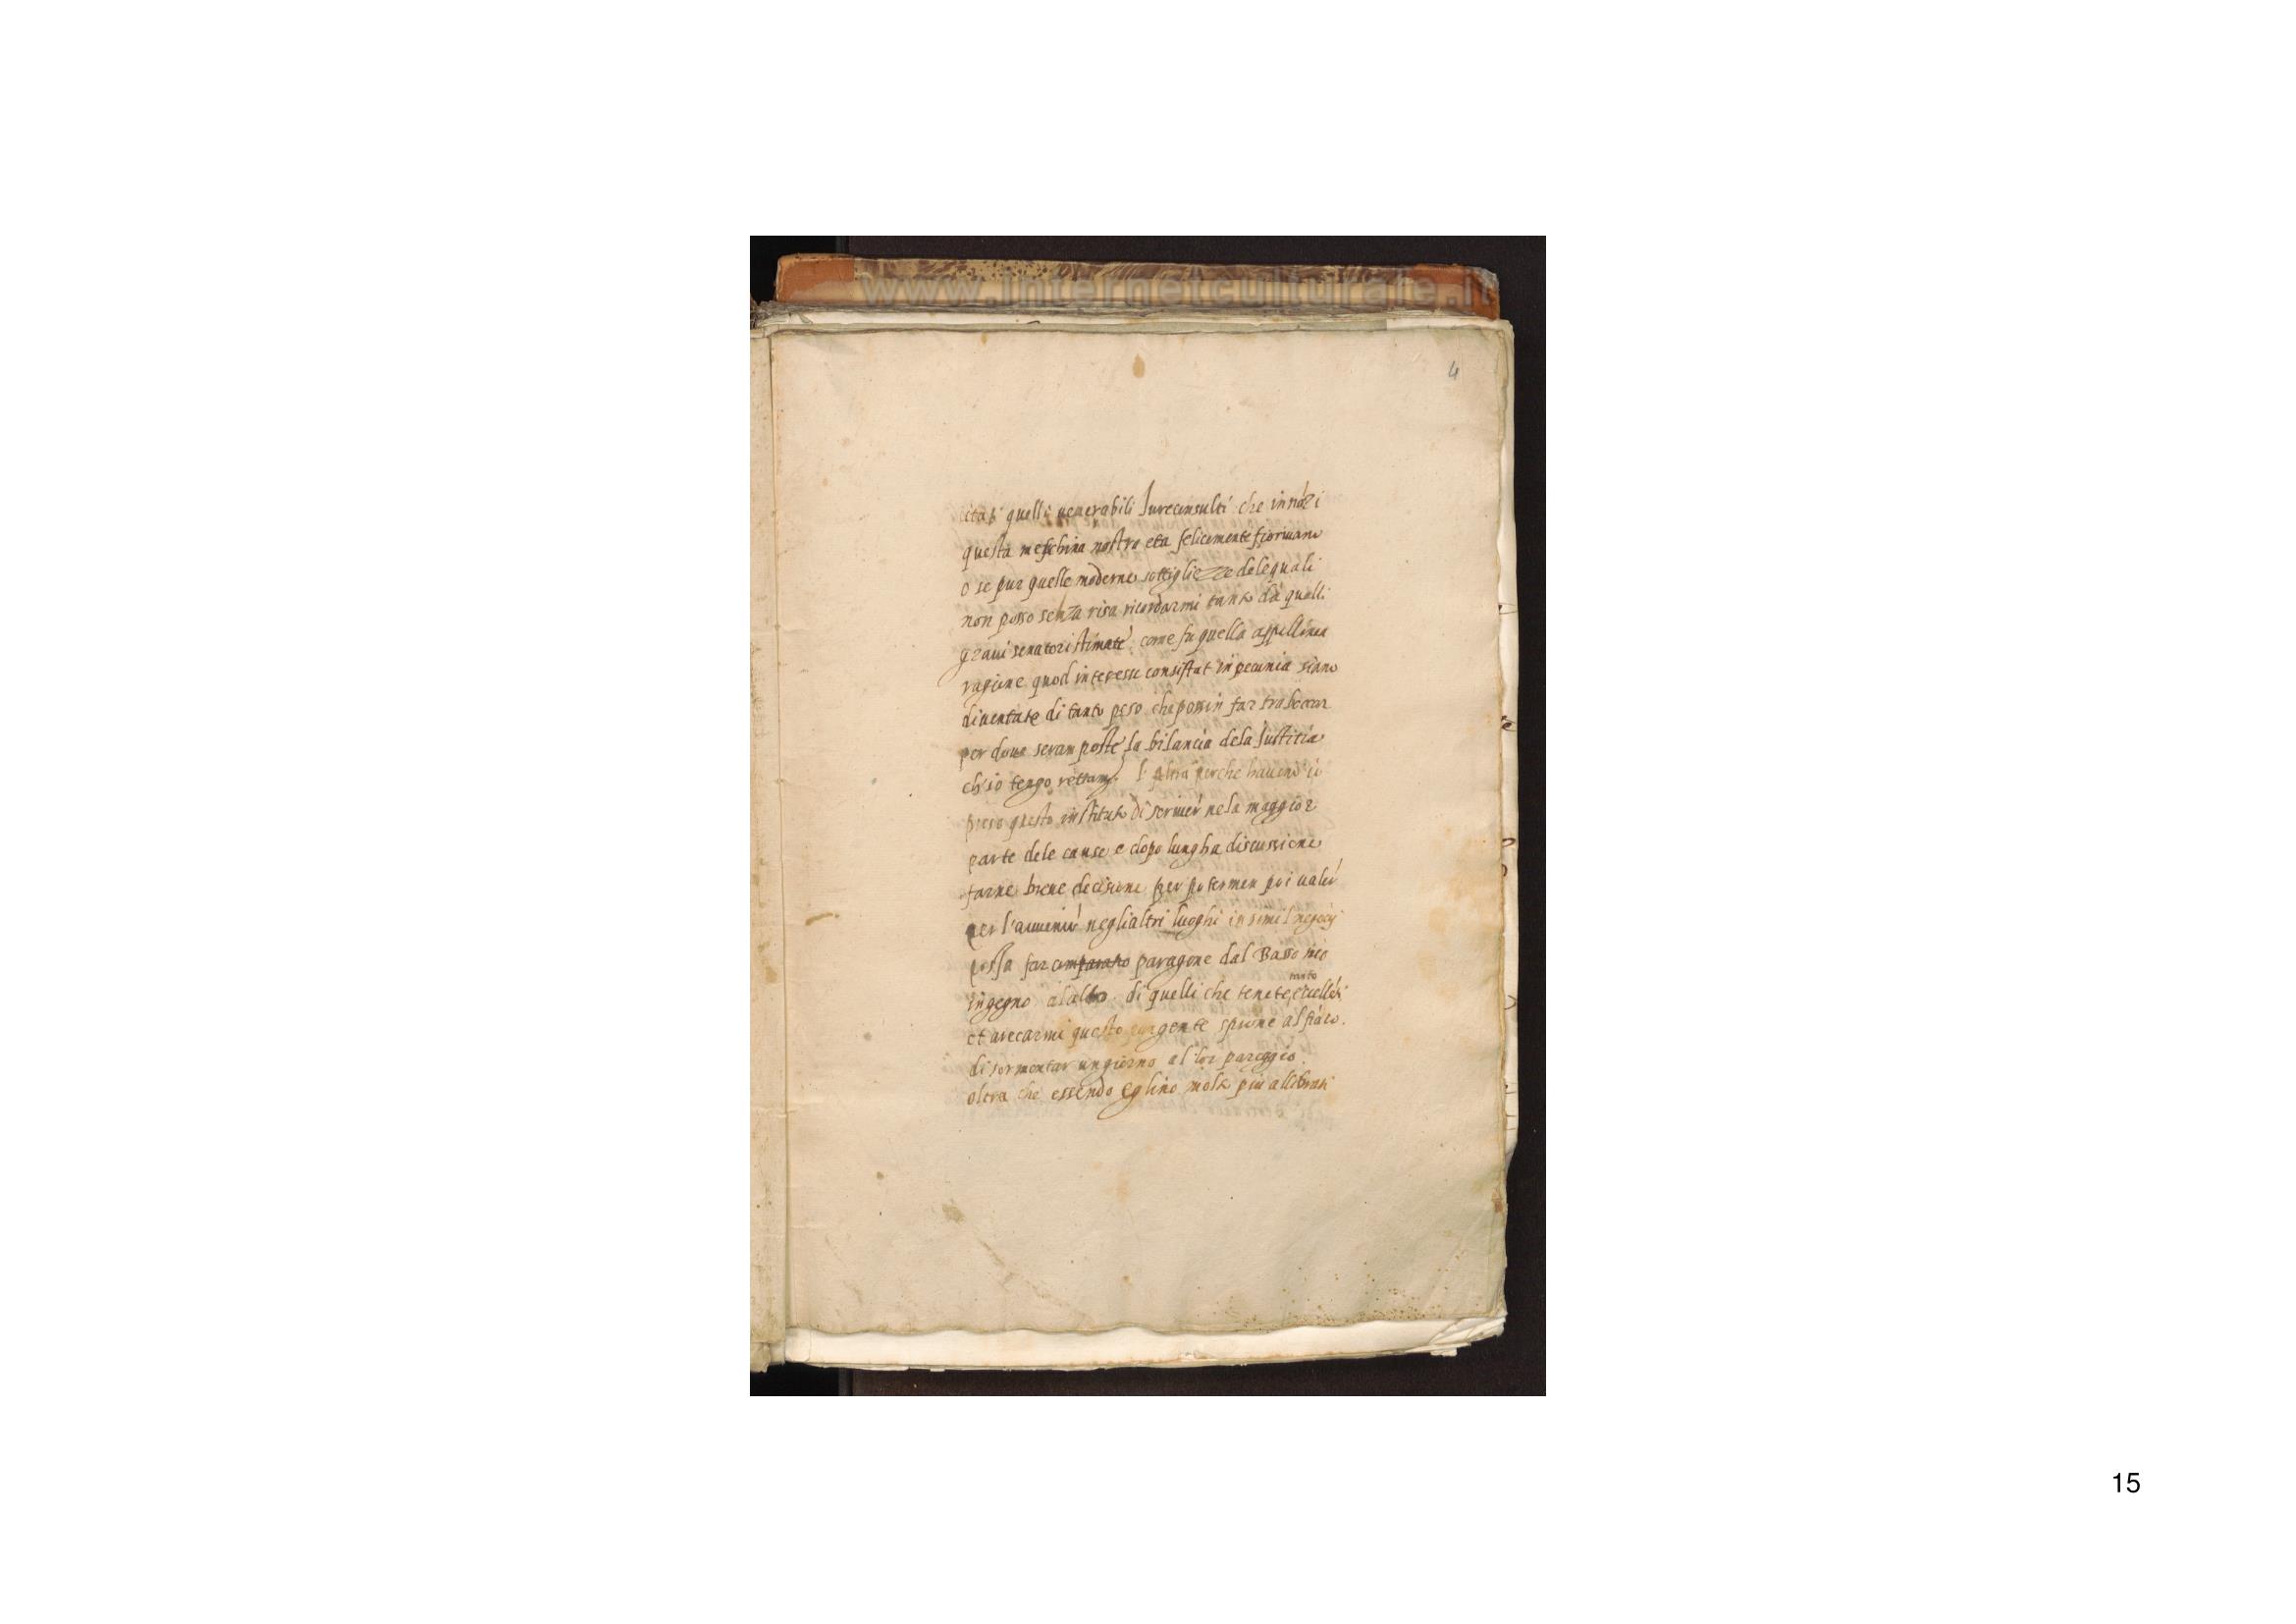 www.internetculturale.it
4
citati quelli venerabili Jureconsulti che innāzi
questa meschina nostra eta felicemente fiorivano
o se pur quelle moderne sottigliezze dele quali
non posso senza risa ricordarmi tanto da quelli
gravi senatori stimate, come fu quella appellinea
ragione quod interesse consistat in pecunia siano
diventate di tanto peso che possin far traboccar
per dove seran poste la bilancia dela Justitia
ch'io tengo rettam. l'altra perche havend'io
preso questo instituto di scriver nela maggior
parte dele cause e dopo lungha discussione
farne breve decisione per potermen poi valer
per l'avvenir negli altri luoghi in simil negocij
possa far comparatio paragone dal Basso mio
tanto
ingegno al alto di quelli che tenete eccellēti
et arecarmi questo pungente sprone al fiāco.
di sormontar un giorno al lor pareggio.
oltra che essendo eglino molto piu allibrati
15